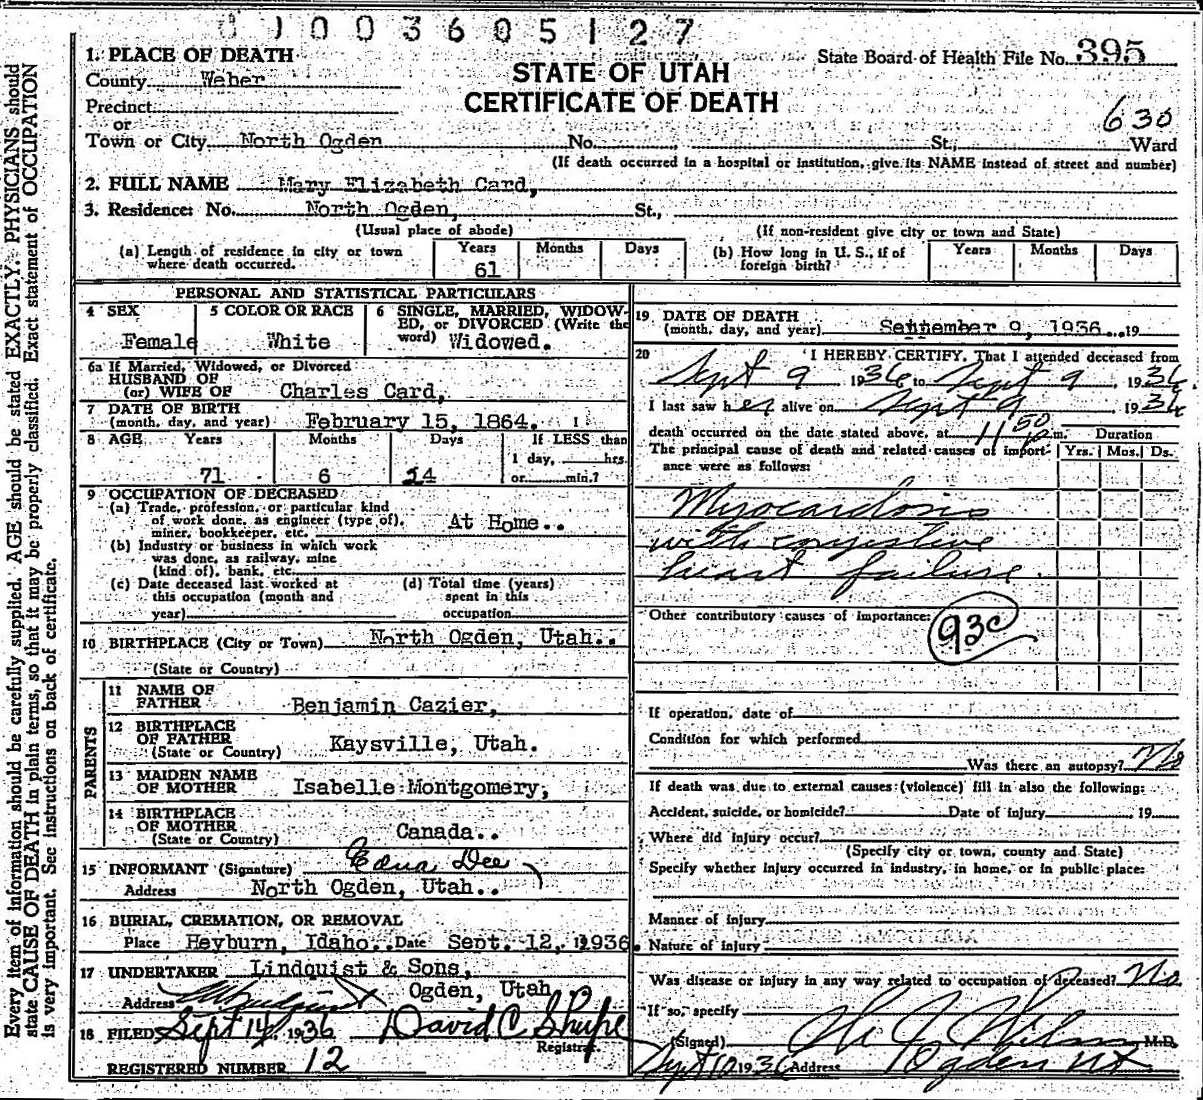 0 1 0 0 3 6 0 5 1 2 7
1. PLACE OF DEATH
State Board of Health File No. 395
County Weber
STATE OF UTAH
CERTIFICATE OF DEATH
Precinct
630
or
Town or City North Ogden No. St., Ward
(If death occurred in a hospital or institution, give its NAME instead of street and number)
2. FULL NAME Mary Elizabeth Card,
3. Residence: No. North Ogden, St.,
(Usual place of abode) (If non-resident give city or town and State)
(a) Length of residence in city or town where death occurred. Years 61 Months Days
(b) How long in U. S., if of foreign birth? Years Months Days
PERSONAL AND STATISTICAL PARTICULARS
4 SEX Female
5 COLOR OR RACE White
6 SINGLE, MARRIED, WIDOWED, or DIVORCED (Write the word) Widowed.
6a If Married, Widowed, or Divorced
HUSBAND OF
(or) WIFE OF Charles Card,
7 DATE OF BIRTH
(month, day, and year) February 15, 1864.
8 AGE Years Months Days If LESS than
1 day, hrs.
71 6 24 or min.?
9 OCCUPATION OF DECEASED
(a) Trade, profession, or particular kind
of work done, as engineer (type of), At Home..
miner, bookkeeper, etc.
(b) Industry or business in which work
was done, as railway, mine
(kind of), bank, etc.
(c) Date deceased last worked at this occupation (month and year)
(d) Total time (years) spent in this occupation
10 BIRTHPLACE (City or Town) North Ogden, Utah..
(State or Country)
PARENTS
11 NAME OF
FATHER Benjamin Cazier,
12 BIRTHPLACE
OF FATHER Kaysville, Utah.
(State or Country)
13 MAIDEN NAME
OF MOTHER Isabelle Montgomery,
14 BIRTHPLACE
OF MOTHER Canada..
(State or Country)
15 INFORMANT (Signature) Edna Dee
Address North Ogden, Utah..
16 BURIAL, CREMATION, OR REMOVAL
Place Heyburn, Idaho.. Date Sept. 12, 1936.
17 UNDERTAKER Lindquist & Sons,
Address Ogden, Utah
18 FILED Sept 14, 1936 David C Shupe
Registrar
REGISTERED NUMBER 12
19 DATE OF DEATH
(month, day, and year) September 9, 1936 19
20 I HEREBY CERTIFY, That I attended deceased from
Sept 9 1936 to Sept 9, 1936.
I last saw her alive on Sept 9, 1936
death occurred on the date stated above, at 11 50 p m. Duration
The principal cause of death and related causes of importance were as follows: Yrs. Mos. Ds.
Myocardosis
with congestive
heart failure.
Other contributory causes of importance:
93c
If operation, date of
Condition for which performed
Was there an autopsy? No
If death was due to external causes (violence) fill in also the following:
Accident, suicide, or homicide? Date of injury 19
Where did injury occur?
(Specify city or town, county and State)
Specify whether injury occurred in industry, in home, or in public place:
Manner of injury
Nature of injury
Was disease or injury in any way related to occupation of deceased? No
If so, specify
(Signed) M.D.
Sept 10 1936 Address Ogden Ut
Every item of information should be carefully supplied. AGE should be stated EXACTLY. PHYSICIANS should
state CAUSE OF DEATH in plain terms, so that it may be properly classified. Exact statement of OCCUPATION
is very important. See instructions on back of certificate.